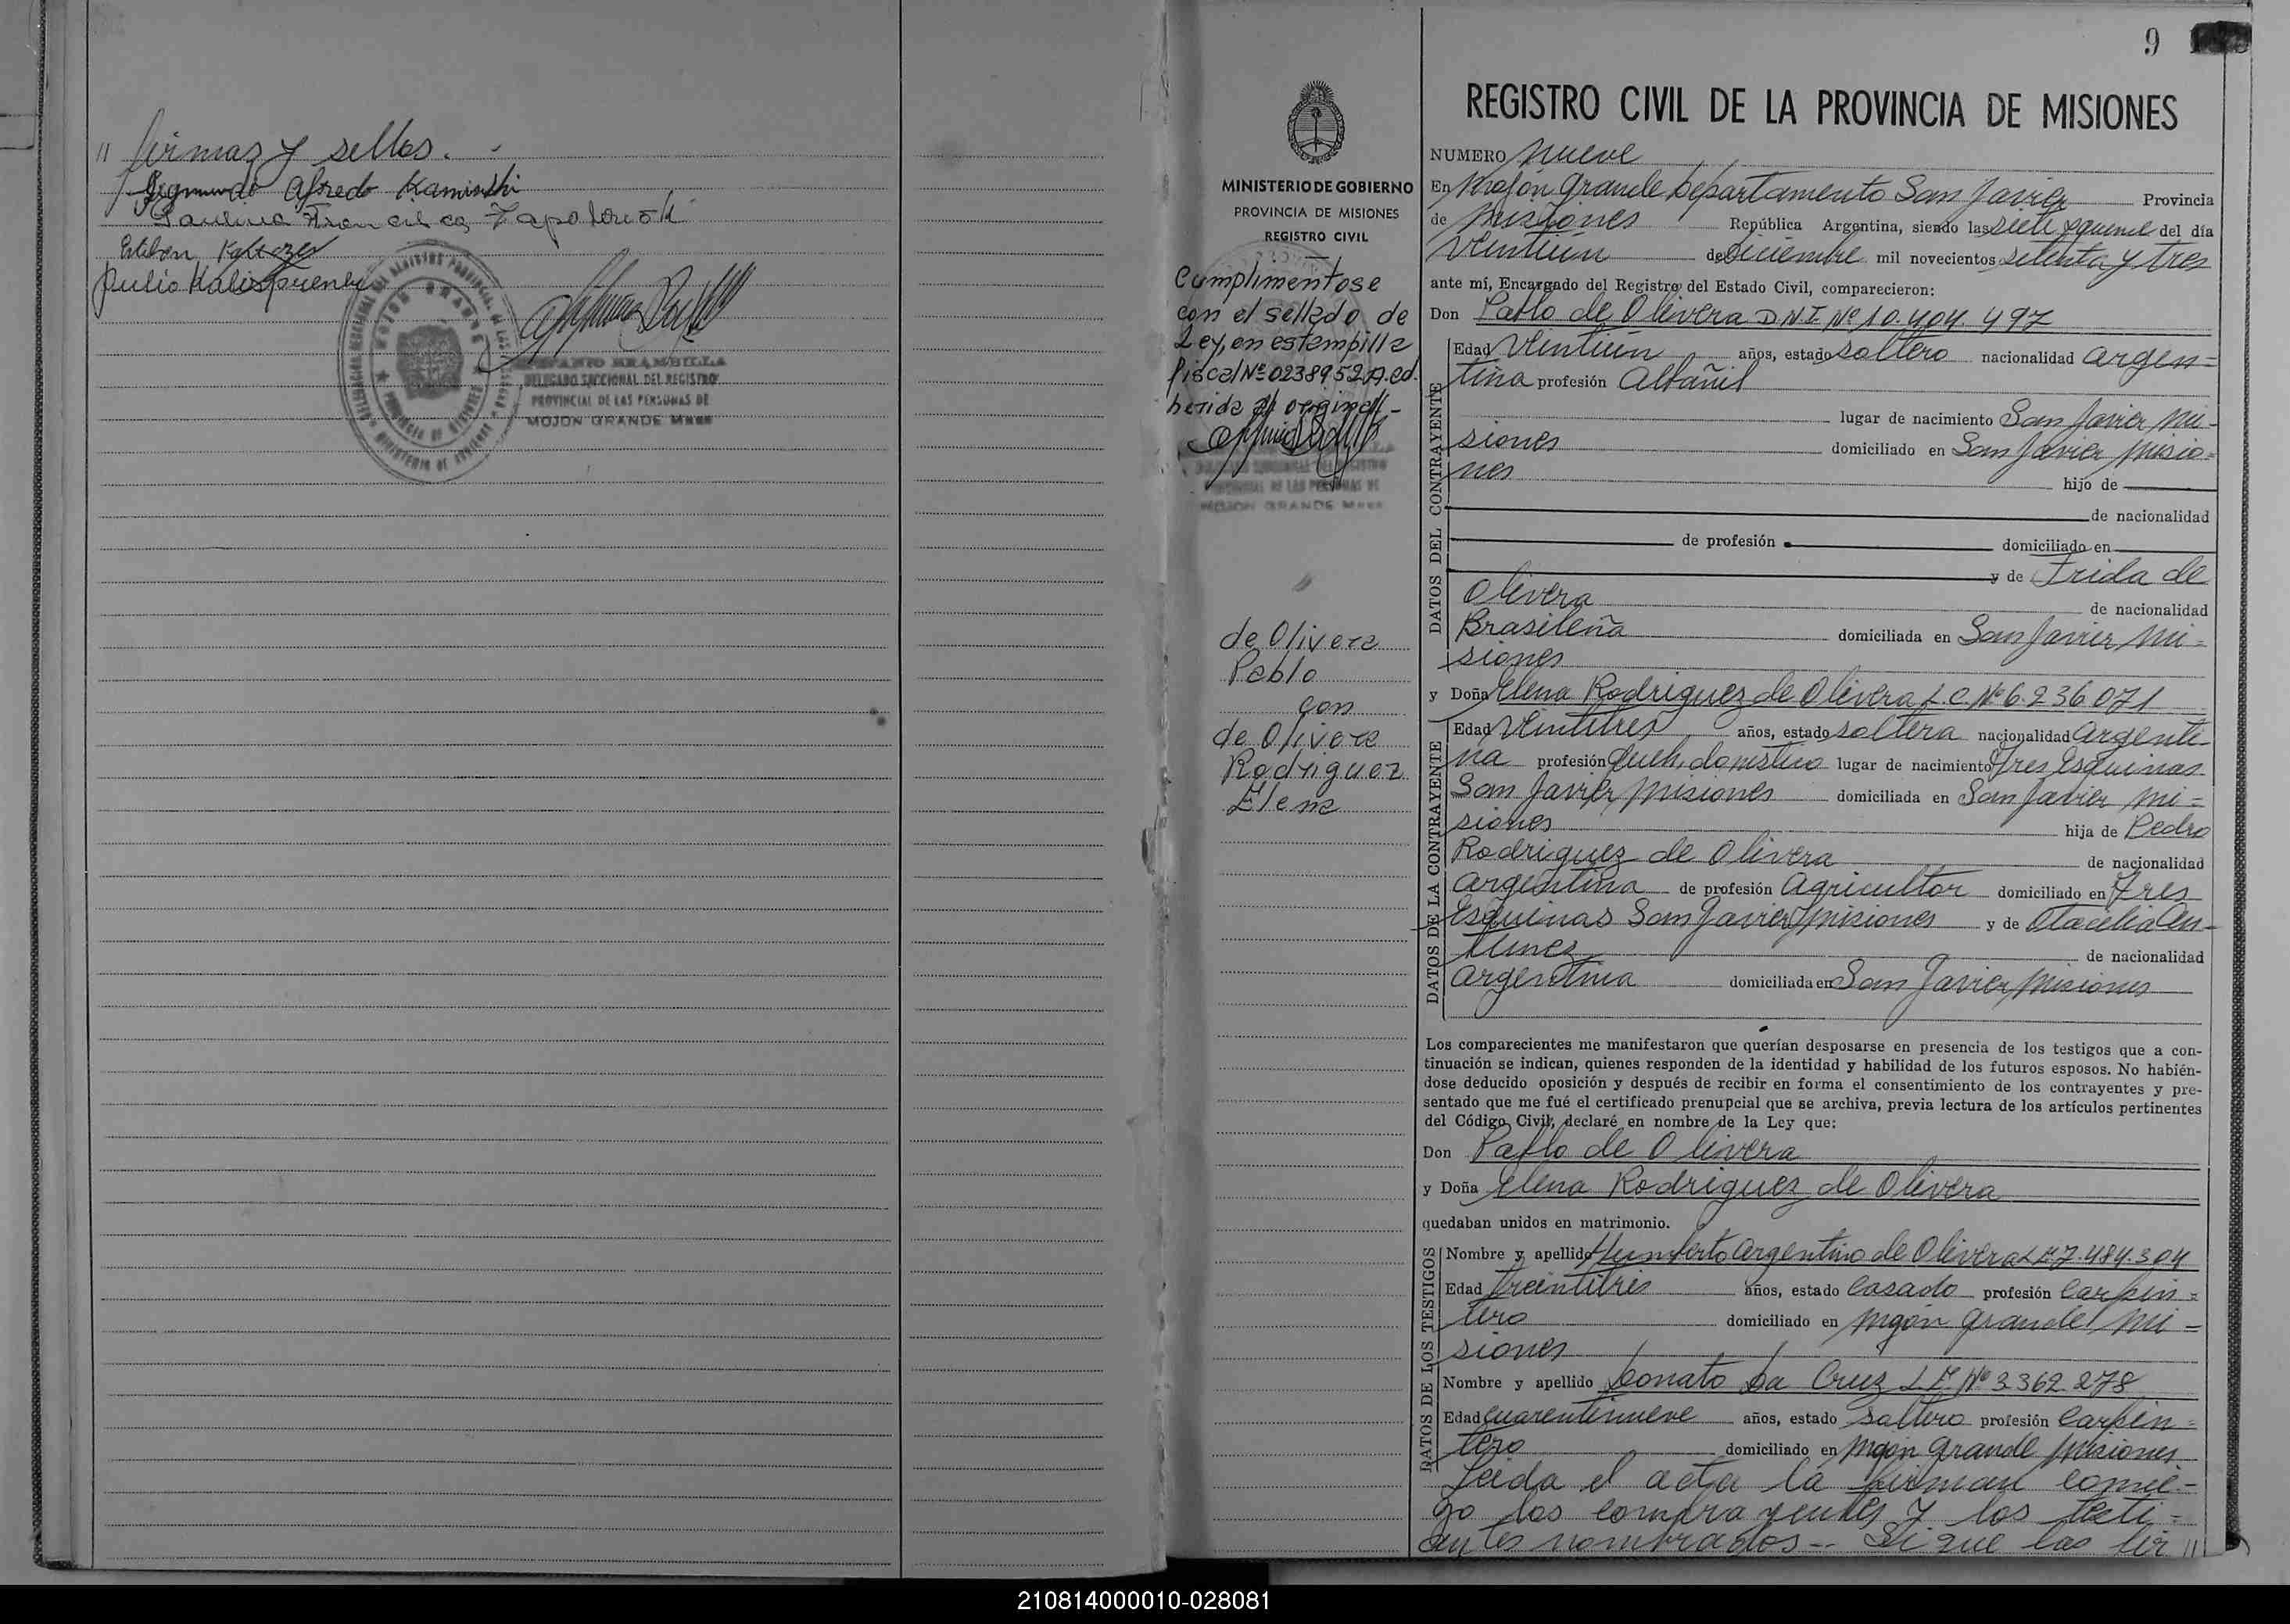 // firmas y sellos. -
Segmundo Alfredo Kaminski
Paulina Francisca
Esteban
Julio
DELEGADO SECCIONAL DEL REGISTRO
PROVINCIAL DE LAS PERSONAS DE
MOJON GRANDE Mnes
MINISTERIO DE GOBIERNO
PROVINCIA DE MISIONES
REGISTRO CIVIL
Cumplimentose
con el sellado de
Ley, en estampilla
fiscal Nº 0238952 A. ad
herida al original -
PROVINCIAL DE LAS PERSONAS DE
MOJON GRANDE Mnes
de Olivera
Pablo
con
de Olivera
Rodriguez
Elena
9
REGISTRO CIVIL DE LA PROVINCIA DE MISIONES
NUMERO Nueve
En Mojón Grande Departamento San Javier Provincia
de Misiones República Argentina, siendo las siete y quince del día
Veintiún de Diciembre mil novecientos setenta y tres
ante mí, Encargado del Registro del Estado Civil, comparecieron:
Don Pablo de Olivera D.N.I. Nº 10.404.497
DATOS DEL CONTRAYENTE
Edad Veintiún años, estado soltero nacionalidad argen=
tina profesión Albañil
lugar de nacimiento San Javier Mi-
siones domiciliado en San Javier Misio=
nes hijo de
de nacionalidad
de profesión domiciliado en
y de Frida de
Olivera de nacionalidad
Brasileña domiciliada en San Javier Mi=
siones
y Doña Elena Rodriguez de Olivera L.C. Nº 6.236.071
DATOS DE LA CONTRAYENTE
Edad Veintitres años, estado soltera nacionalidad argenti-
na profesión Queh. doméstico lugar de nacimiento Tres Esquinas
San Javier Misiones domiciliada en San Javier Mi=
siones hija de Pedro
Rodriguez de Olivera de nacionalidad
argentina de profesión Agricultor domiciliado en Tres
Esquinas San Javier Misiones y de Otacilia An-
tunez de nacionalidad
argentina domiciliada en San Javier Misiones
Los comparecientes me manifestaron que querían desposarse en presencia de los testigos que a con-
tinuación se indican, quienes responden de la identidad y habilidad de los futuros esposos. No habién-
dose deducido oposición y después de recibir en forma el consentimiento de los contrayentes y pre-
sentado que me fué el certificado prenupcial que se archiva, previa lectura de los artículos pertinentes
del Código Civil, declaré en nombre de la Ley que:
Don Pablo de Olivera
y Doña Elena Rodriguez de Olivera
quedaban unidos en matrimonio.
DATOS DE LOS TESTIGOS
Nombre y apellido Humberto Argentino de Olivera L.E. 7.484.304
Edad Treintitres años, estado casado profesión Carpin=
tero domiciliado en Mojón Grande Mi=
siones
Nombre y apellido Donato Da Cruz L.E. Nº 3.362.278
Edad cuarentinueve años, estado Soltero profesión Carpin=
tero domiciliado en Mojón Grande Misiones
Leida el acta la firman conmi-
go los contrayentes y los testi=
antes nombrados -- Si que las fir //
210814000010-028081